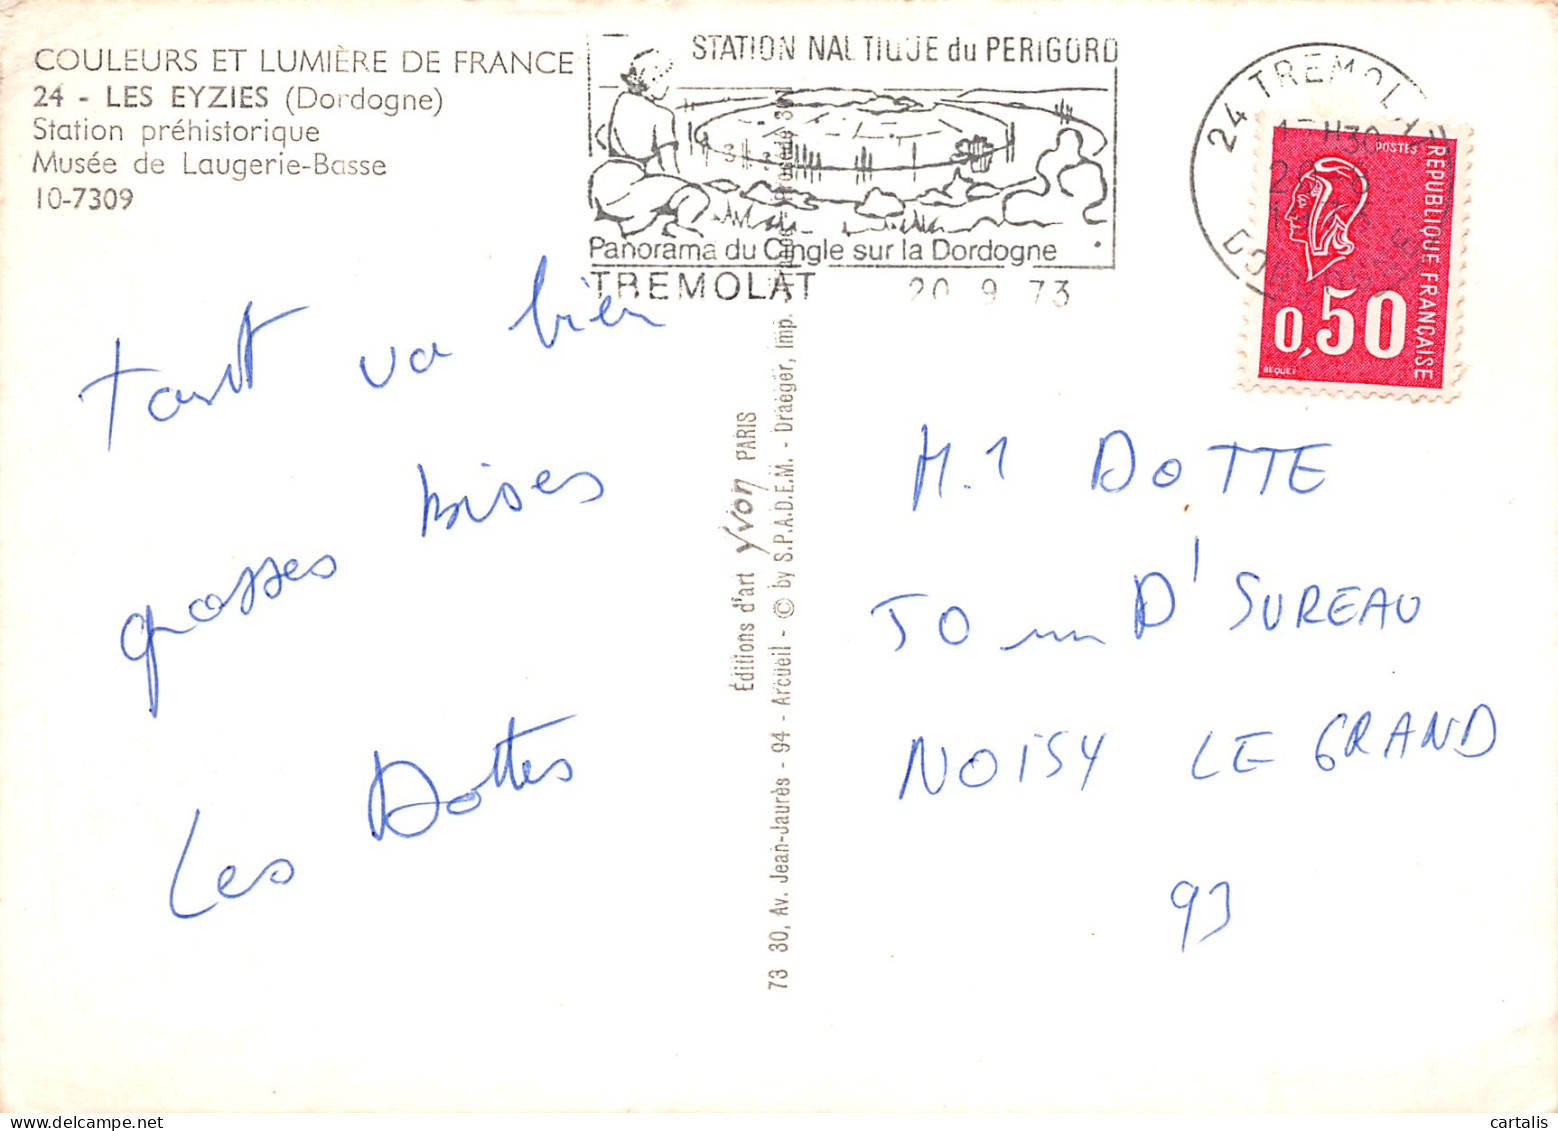 COULEURS ET LUMIÈRE DE FRANCE
24 - LES EYZIES (Dordogne)
Station préhistorique
Musée de Laugerie-Basse
10-7309
STATION NAUTIQUE du PERIGORD
Panorama du Cingle sur la Dordogne
TREMOLAT 20 9 73
24 TREMOLAT
DORDOGNE
POSTES
REPUBLIQUE FRANÇAISE
0,50
BEQUET
tout va bien
grosses bises
Les Dottes
Éditions d'art yvon PARIS
73 30, Av. Jean-Jaurès - 94 - Arcueil - © by S.P.A.D.E.M. - Draeger, Imp.
DOTTE
D'SUREAU
NOISY LE GRAND
93
cartalis